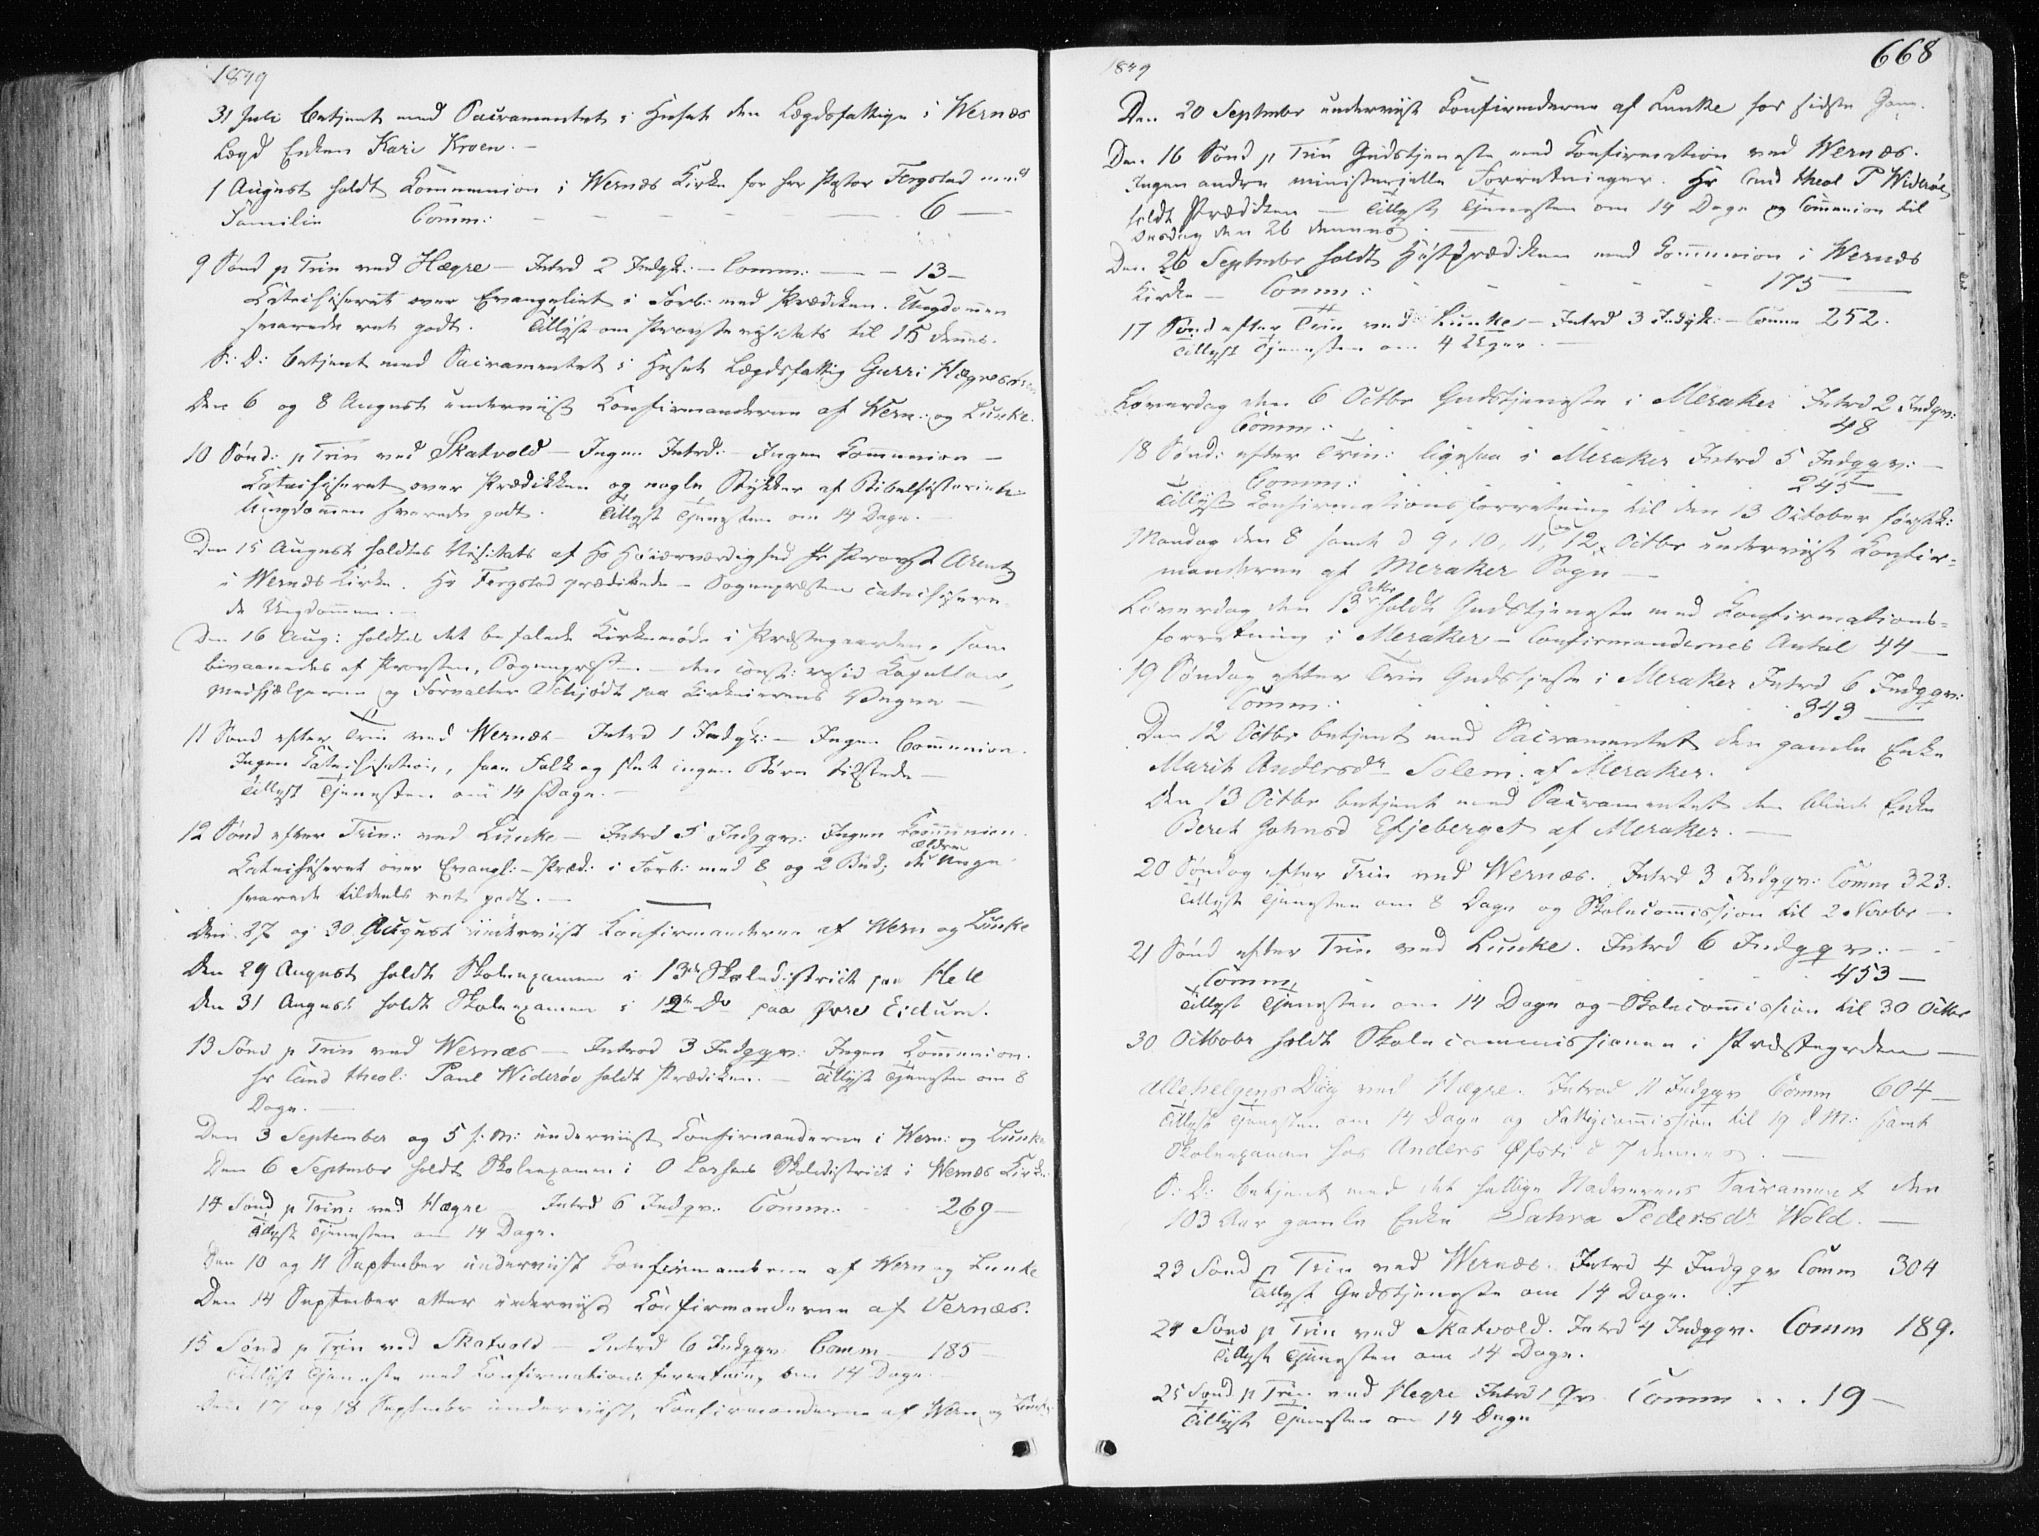 1849
31 Juli betjent med Sacramentet i Huset den Lægdsfattige i Wernæs
Lægd Enken Kari Kroen. –
1 August holdt Communion i Wernæs Kirke for Hr Pastor Fergstad med
Familie Comm: – – – – – 6 –
9 Sønd p Trin ved Hegre – Introd 2 Indgk: – Comm: – – 13 –
Catechiseret over Evangeliet i Forb: med Prædiken. Ungdommen
svarede ret godt. Tillyst om Provstevisitats til 15 dennes.
S: D: betjent med Sacramentet i Huset Lægdsfattig Gurri
Den 6 og 8 August underviist Confirmanderne af Wern: og Lunke.
10 Sønd: p Trin ved Skatvold – Ingen Introd: – Ingen Communion –
Catechiseret over Prædikken og nogle Stykker af Bibelhistorien
Ungdommen svarede godt. Tillyst Tjenesten om 14 Dage. –
Den 15 August holdtes Visitats af Hs Høiærværdighed Hr Provst Arentz
i Wernæs Kirke. Hr Fergstad prædikede – Sognepræsten catechisere-
de Ungdommen. –
Den 16 Aug: holdtes det befalede Kirkemøde i Præstegaarden, som
bivaanedes af Provsten, Sognepresten – den const: resid Kapellan,
Medhjælperne og Forvalter Schjødt paa Kirkeeierens Vegne –
11 Sønd efter Trin ved Wernæs – Introd 1 Indgk: – Ingen Communion.
Ingen Catechisation, faae Folk og slet ingen Børn tilstede –
Tillyst Tjenesten om 14 Dage. –
12 Sønd efter Trin: ved Lunke – Introd 5 Indgqv: Ingen Communion.
Catechiseret over Evangl: – Præd: i Forb: med 8 og 2 Bud; de ældre Unge
svarede tildeels ret godt. –
Den 27 og 30 August underviist Confirmanderne af Wern og Lunke
Den 29 August holdt Skoleexamen i 13de Skoledistrict paa Hell
Den 31 August holdt Skoleexamen i 12te Do paa Øvre Eidum.
13 Sønd p Trin ved Wernæs – Introd 3 Indgqv: Ingen Communion.
Hr Cand theol: Paul Widerøe holdt Prædiken. – Tillyst Tjenesten om 8
Dage. –
Den 3 September og 5 s: M: underviist Confirmanderne i Wern: og Lunke
Den 6 September holdt Skoleexamen i O Larsens Skoledistrict i Wernæs Kirke
14 Sønd p Trin: ved Hegre – Introd 6 Indgqv: Comm: 269 –
Tillyst Tjenesten om 14 Dage.
Den 10 og 11 September underviist Confirmanderne af Wern og Lunke
Den 14 September atter underviist Confirmanderne af Vernæs.
15 Sønd p Trin ved Skatvold – Introd 6 Indgqv: Comm – 185 –
Tillyst Tjeneste med Confirmationsforretning om 14 Dage. –
Den 17 og 18 September underviist Confirmanderne af Wern og Lunke
1849
668
Den 20 September underviist Confirmanderne af Lunke for sidste Gang.
Den 16 Sønd p Trin Gudstjeneste med Confirmation ved Wernæs.
Ingen andre ministerielle Forretninger. Hr Cand theol P Widerøe
holdt Prædiken – Tillyst Tjenesten om 14 Dage og Communion til
Onsdag den 26 dennes. –
Den 26 September holdt Høstprædiken med Communion i Wernæs
Kirke – Comm: 175 –
17 Sønd efter Trin ved Lunke – Introd 3 Indgk: – Comm 252.
Tillyst Tjenesten om 4 Uger. –
Løverdag den 6 Octbr Gudstjeneste i Meraker Introd 2 Indgqv:
Comm: 48
18 Sønd: efter Trin: ligesaa i Meraker Introd 5 Indgqv: –
Comm: 245 –
Tillyst Confirmationsforretning til den 13 October førstk:
Mandag den 8 samt d 9, 10, 11, og 12 Octbr underviist Confir=
manderne af Meraker Sogn –
Løverdag den 13 Octbr holdt Gudstjeneste med Confirmations=
forretning i Meraker – Confirmandernes Antal 44 –
19 Søndag efter Trin Gudstjeste i Meraker Introd 6 Indgqv:
Comm: 343 –
Den 12 Octbr betjent med Sacramentet den gamle Enke
Marit Andersdr Solem: af Meraker.
Den 13 Octbr betjent med Sacramentet den blinde Enke
Beret Johnsd Efjeberget af Meraker. –
20 Søndag efter Trin ved Wernæs. Introd 3 Indgqv: Comm 323.
Tillyst Tjenesten om 8 Dage og Skolecommission til 2 Novbr –
21 Sønd efter Trin ved Lunke. Introd 6 Indgqv: – –
Comm, 453 –
Tillyst Tjenesten om 14 Dage og Skolecommission til 30 Octbr
30 Octbobr holdt Skolecommissionen i Præstegrden –
Allehelgens Dag ved Hegre. Introd 11 Indgqv Comm 604 –
Tillyst Tjenesten om 14 Dage og Fattigcommission til 19 d M: samt
Skoleexamen hos Anders Øfsti d 7 dennes. –
S: D: betjent med det hellige Nadverens Sacrament den
103 Aar gamle Enke Sahra Pedersdr Wold. –
23 Sønd p Trin ved Wernæs. Introd 4 Indgqv Comm 304
Tillyst Gudstjeneste om 14 Dage.
24 Sønd p Trin ved Skatvold. Introd 4 Indgqv. Comm 189.
Tillyst Tjenesten om 14 Dage.
25 Sønd p Trin ved Hegre Introd 1 Qv Comm . . . 19 –
Tillyst Tjenesten om 14 Dage